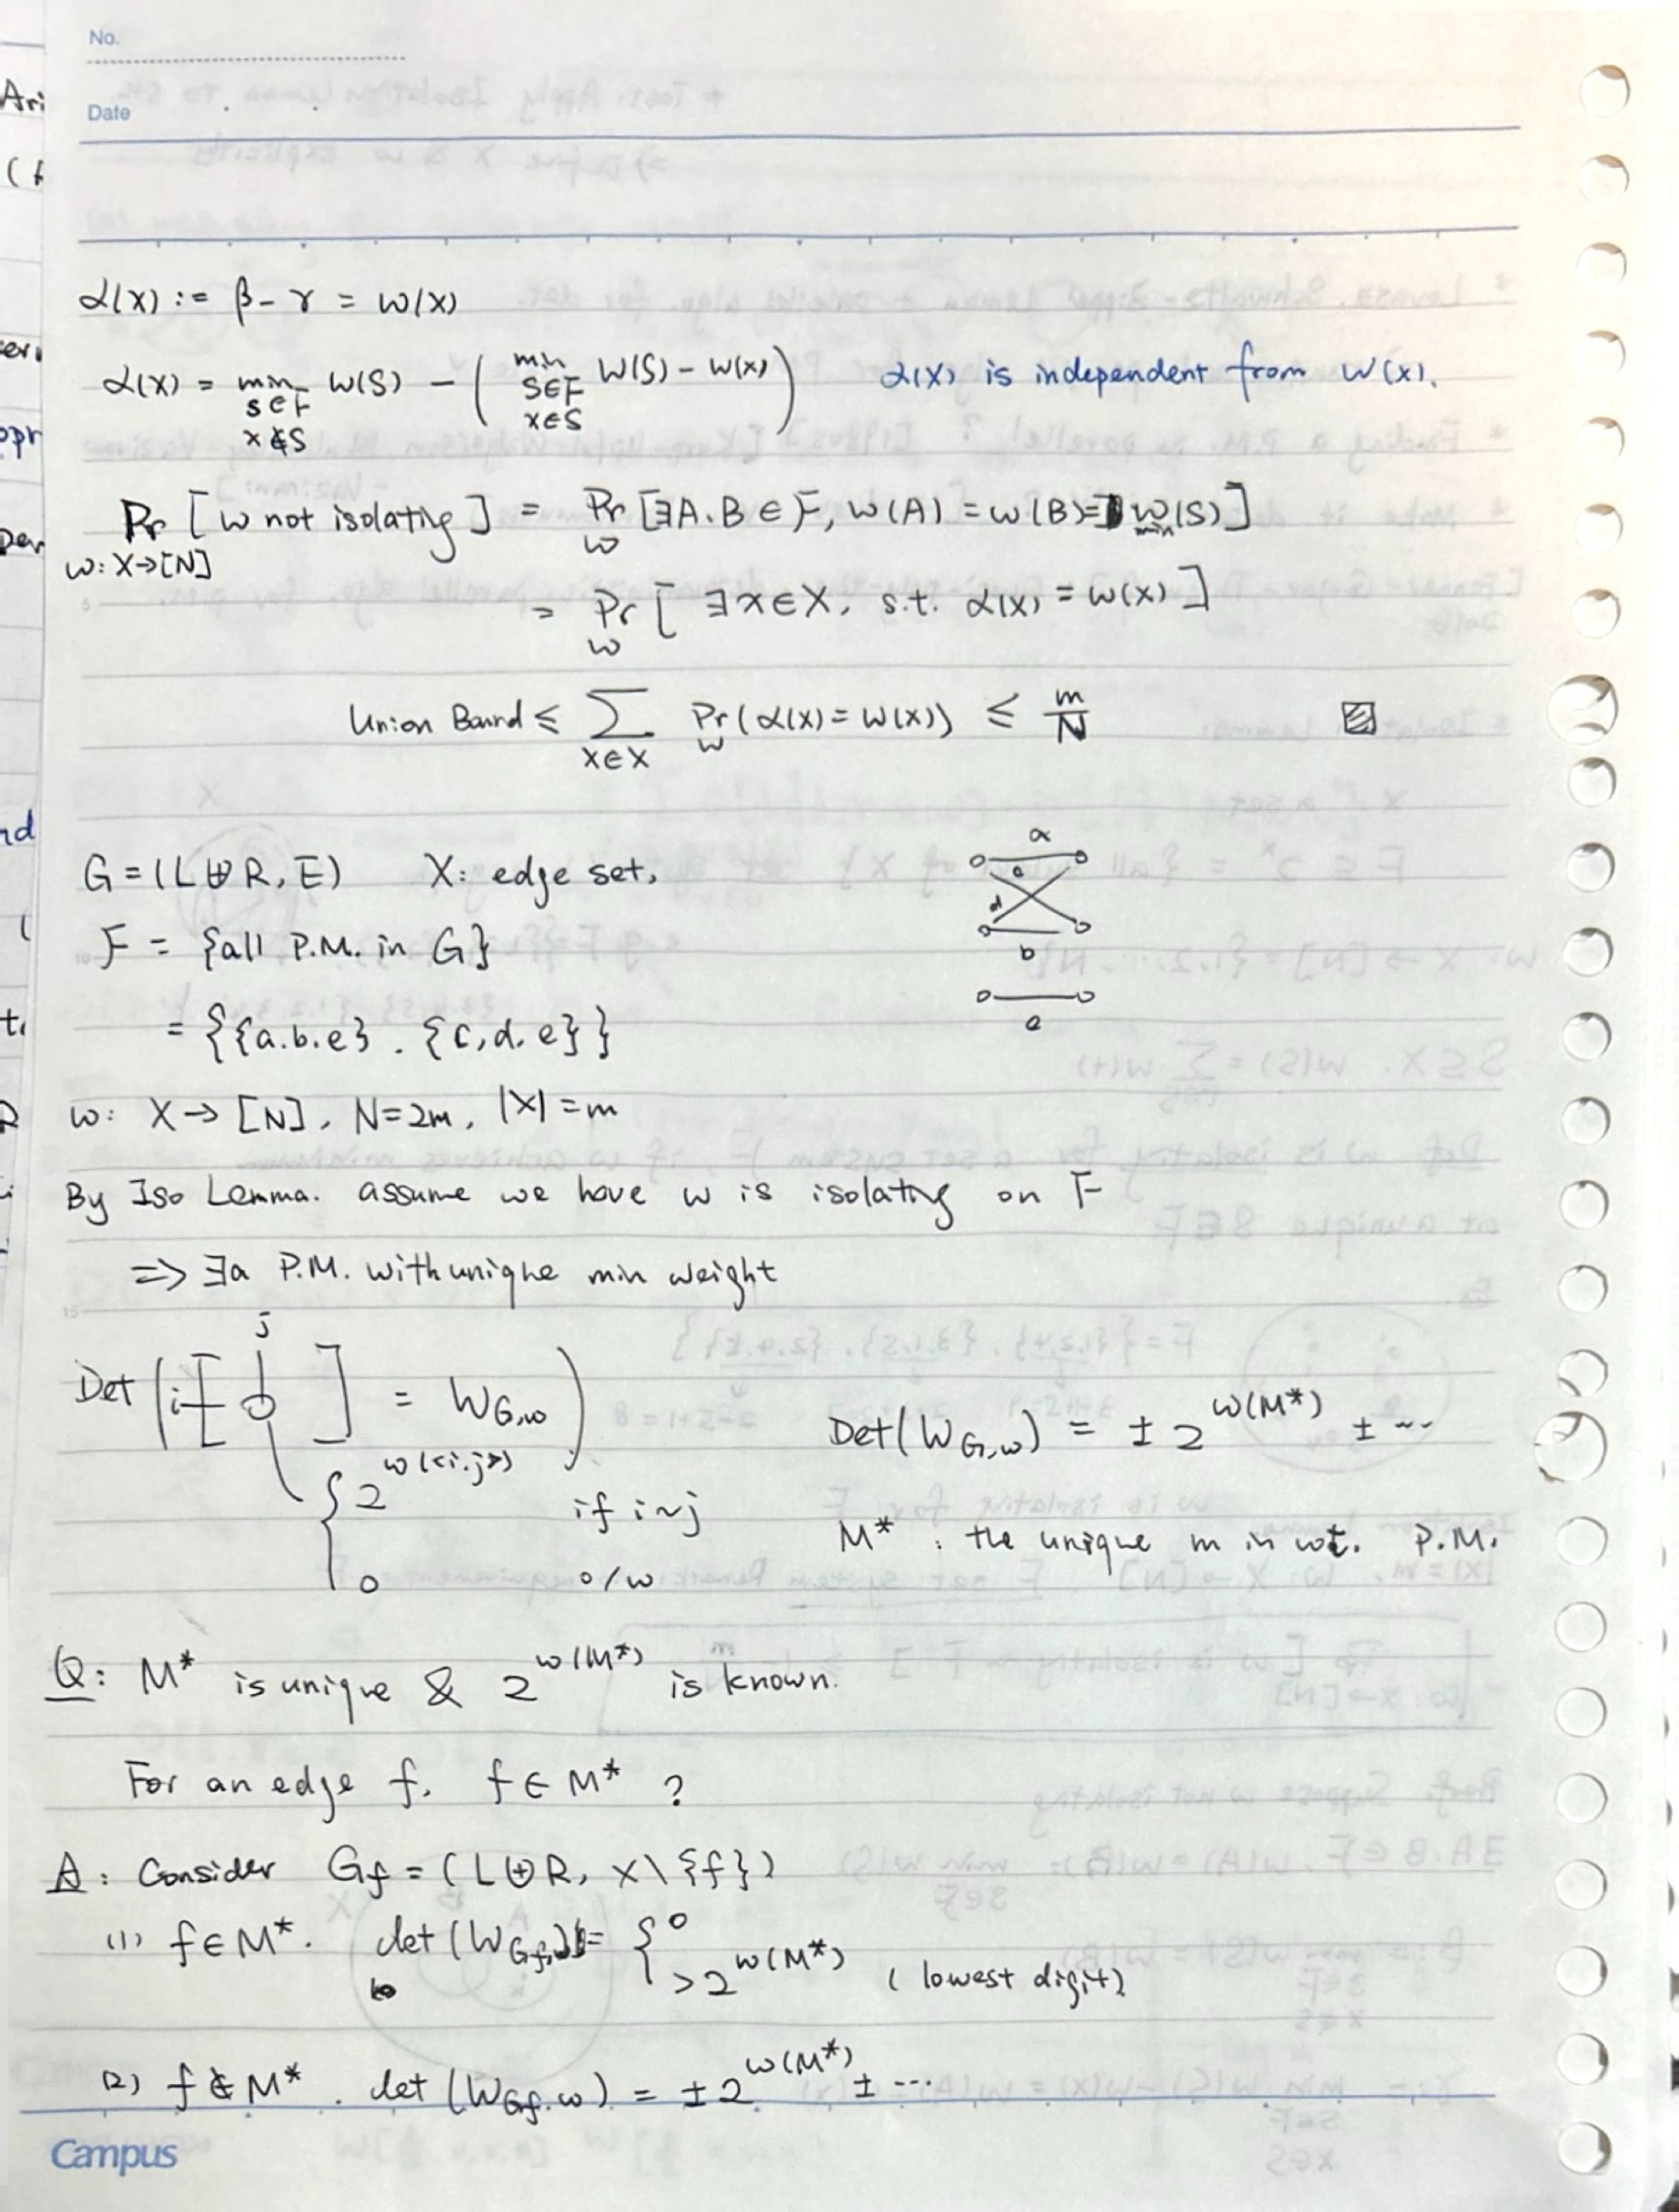 No.
Date
α(x) := β - γ = w(x)
α(x) = min_{S∈F, x∉S} w(S) - ( min_{S∈F, x∈S} w(S) - w(x) )  α(x) is independent from w(x).
Pr_{w: X→[N]} [w not isolating] = Pr_w [∃A.B ∈ F, w(A) = w(B) = min w(S)]
= Pr_w [ ∃x∈X, s.t. α(x) = w(x) ]
Union Bound ≤ Σ_{x∈X} Pr_w (α(x) = w(x)) ≤ m/N
G = (L⊎R, E)  X: edge set,
F = {all P.M. in G}
= {{a.b.e} . {c,d.e}}
a
c
d
b
e
w: X → [N], N=2m, |X| = m
By Iso Lemma. assume we have w is isolating on F
⇒ ∃a P.M. with unique min weight
j
Det ( i [ ] = W_{G,w} )
{ 2^{w(<i,j>)} if i~j
0 o/w
Det(W_{G,w}) = ± 2^{w(M*)} ± ...
M* : the unique min wt. P.M.
Q: M* is unique & 2^{w(M*)} is known.
For an edge f. f ∈ M* ?
A: Consider G_f = (L⊎R, X\{f})
(1) f∈M*. det(W_{G_f,w}) = { 0
>2^{w(M*)} (lowest digit)
(2) f∉M*. det(W_{G_f.w}) = ±2^{w(M*)} ± ...
Campus